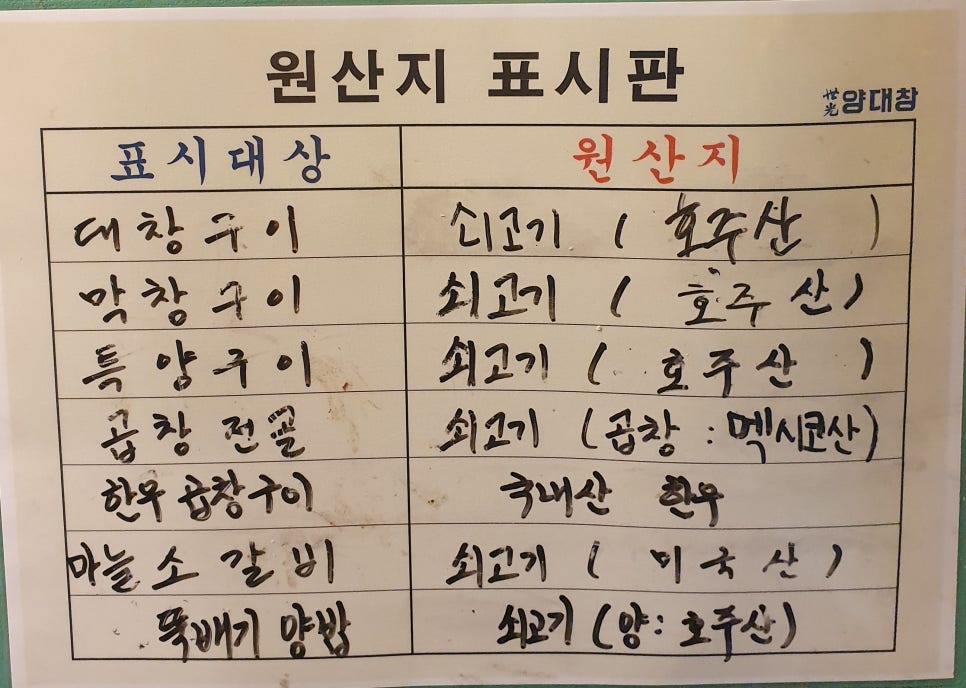 원산지 표시판
世光 양대창
표시대상 원산지
대창구이 쇠고기 ( 호주산 )
막창구이 쇠고기 ( 호주산 )
특양구이 쇠고기 ( 호주산 )
곱창전골 쇠고기 (곱창 : 멕시코산)
한우곱창구이 국내산 한우
마늘소갈비 쇠고기 ( 미국산 )
뚝배기양밥 쇠고기 (양: 호주산)